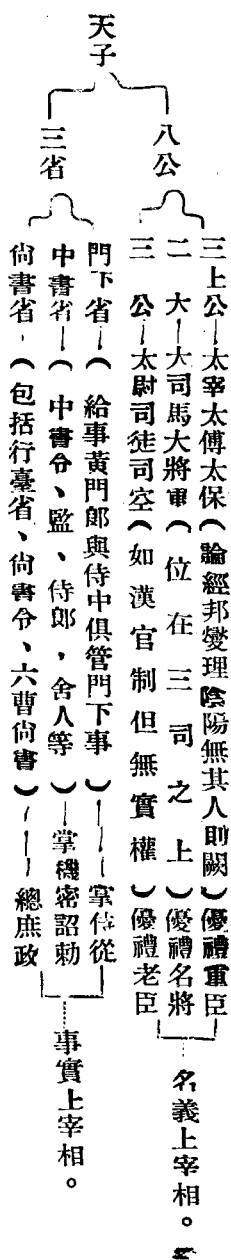 天子
八公
三上公—太宰太傅太保(論經邦燮理陰陽無其人則闕)優禮重臣
二大—大司馬大將軍(位在三司之上)優禮名將
三公—太尉司徒司空(如漢官制但無實權)優禮老臣
名義上宰相。
三省
門下省—(給事黃門郎與侍中俱管門下事)——掌侍從
中書省—(中書令、監、侍郎,舍人等)—掌機密詔勅
尙書省-(包括行臺省、尙書令、六曹尙書)——總庶政
事實上宰相。